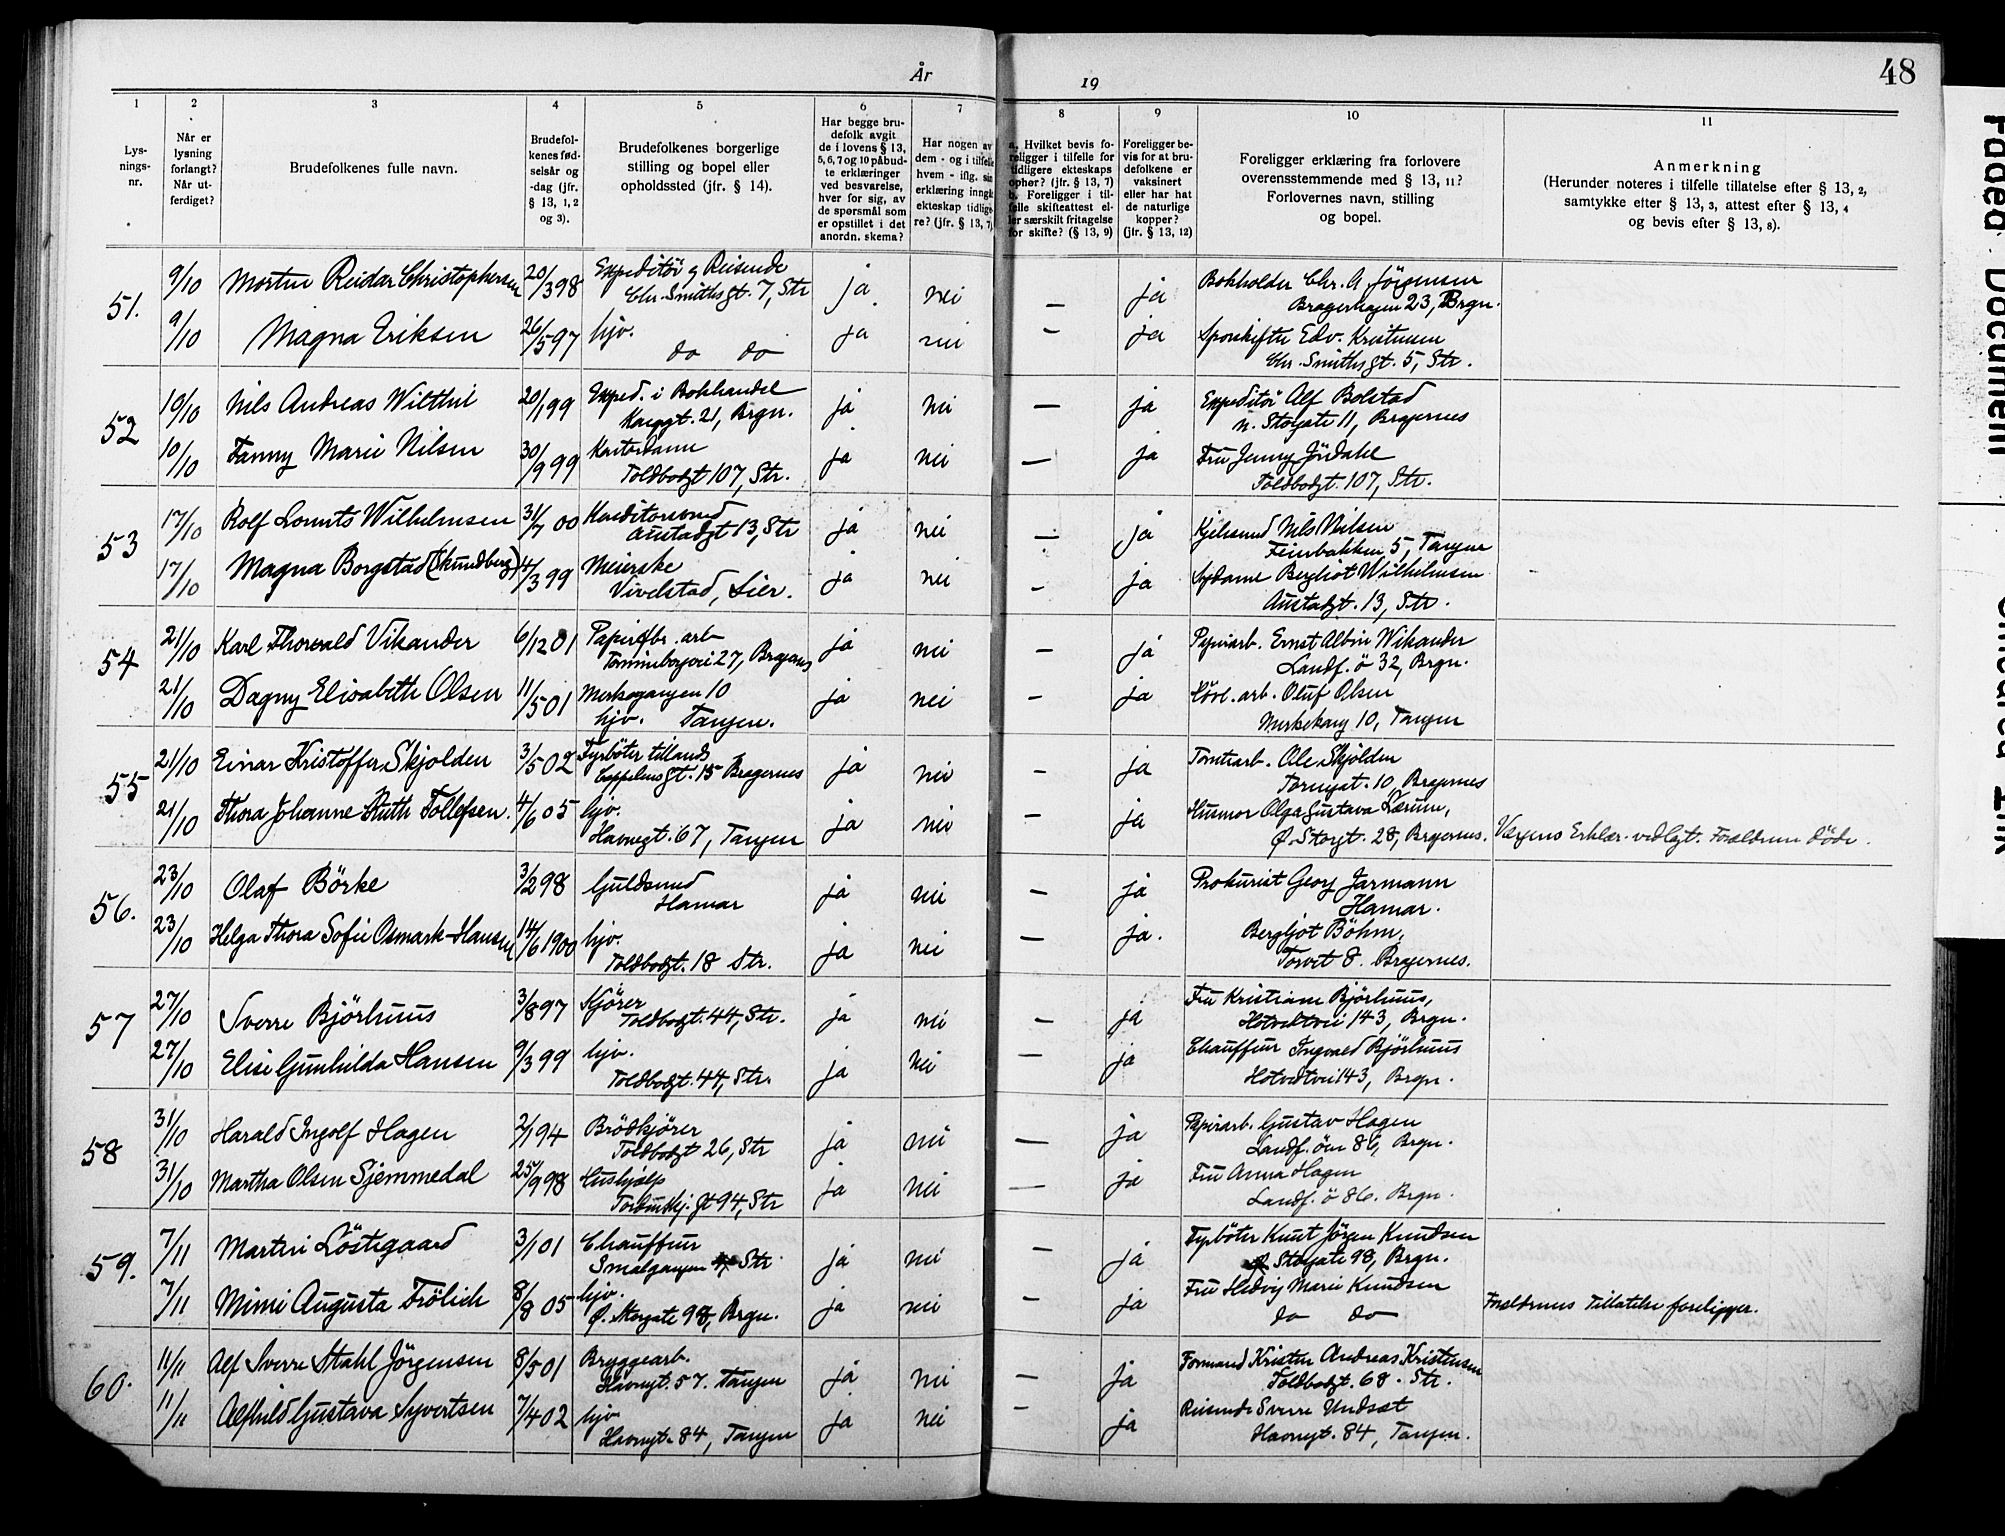 År 19
48
1 2 3 4 5 6 7 8 9 10 11
Lys-
nings-
nr.
Når er
lysning
forlangt?
Når ut-
ferdiget?
Brudefolkenes fulle navn.
Brudefol-
kenes fød-
selsår og
-dag (jfr.
§ 13, 1, 2
og 3).
Brudefolkenes borgerlige
stilling og bopel eller
opholdssted (jfr. § 14).
Har begge bru-
defolk avgit
de i lovens § 13,
5, 6, 7 og 10 påbud-
te erklæringer
ved besvarelse,
hver for sig, av
de spørsmål som
er opstillet i det
anordn. skema?
Har nogen av
dem - og i tilfelle
hvem - iflg. sin
erklæring inngåt
ekteskap tidlige-
re? (jfr. § 13, 7)
a. Hvilket bevis fo-
religger i tilfelle for
tidligere ekteskaps
ophør? (jfr. § 13, 7)
b. Foreligger i til-
felle skifteattest el-
ler særskilt fritagelse
for skifte? (§ 13, 9)
Foreligger be-
vis for at bru-
defolkene er
vaksinert
eller har hat
de naturlige
kopper?
(jfr. § 13, 12)
Foreligger erklæring fra forlovere
overensstemmende med § 13, 11?
Forlovernes navn, stilling
og bopel.
Anmerkning
(Herunder noteres i tilfelle tillatelse efter § 13, 2,
samtykke efter § 13, 3, attest efter § 13, 4
og bevis efter § 13, 8).
51. 9/10 Morten Reidar Christophersen 20/3 98 Expeditör & Reisende ja nei — ja Bokholder Chr. A Jörgensen
Chr. Smithsgt. 7, Str Bragerhagen 23, Brgn.
9/10 Magna Eriksen 26/5 97 hjv. ja nei — ja Edv. Kristensen
do do Chr. Smithsgt. 5, Str.
52 10/10 Nils Andreas Wilthil 20/1 99 Exped. i Bokhandel ja nei — ja Expeditör Alf Bolstad
Konggt. 21, Brgn. n. Storgate 11, Bragernes
10/10 Fanny Marie Nilsen 30/9 99 Kontordame ja nei — ja Fru Jenny Jördahl
Toldbodgt 107, Str. Toldbodgt. 107, Str.
53 17/10 Rolf Lorents Wilhelmsen 31/7 00 Konditorsvend ja nei — ja Kjelsmed Nils Nilsen
Austadgt 13, Str Feierbakken 5, Tangen
17/10 Magna Borgstad (Skundberg) 4/3 99 Meierske ja nei — ja Sydame Bergliot Wilhelmsen
Vivelstad, Lier. Austadgt. 13, Str.
54 21/10 Karl Thorvald Vikander 6/12 01 Papirfbr. arb ja nei — ja Papirarb. Ernst Albin Wikander
27, Bragernes Landf. ö 32, Brgn.
21/10 Dagny Elisabeth Olsen 11/5 01 Merkegangen 10 ja nei — ja Hövl. arb. Oluf Olsen
hjv. Tangen. Merkekang 10, Tangen
55 21/10 Einar Kristoffer Skjolden 3/5 02 Fyrböter tillands ja nei — ja Tomtearb. Ole Skjolden
Cappelensgt. 15 Bragernes Tornegat. 10, Bragernes
21/10 Thora Johanne Ruth Tollefsen. 4/6 05 hjv. ja nei — ja Husmor Olga Gustava Lærum,
Havnegt. 67, Tangen Ø. Storgt. 28, Bragernes. Værgens Erklær. vedlagt. Forældrene döde.
56. 23/10 Olaf Börke 3/2 98 Guldsmed ja nei — ja Prokurist Georg Jarmann
Hamar Hamar.
23/10 Helga Thora Sofie Osmark-Hansen 14/6 1900 hjv. ja nei — ja. Bergljot Böhm,
Toldbodgt. 18 Str. Torvet 8. Bragernes.
57 27/10 Sverre Björhuus 3/8 97 Kjörer ja nei — ja Fru Kristiane Björhuus,
Toldbodgt. 44, Str. Hotvedtvei 143, Brgn.
27/10 Elise Gunhilda Hansen 9/3 99 hjv. ja nei — ja Chauffeur Ingvald Björhuus
Toldbodgt. 44, Str. Hotvedtvei 143, Brgn.
58 31/10 Harald Ingolf Hagen 2/1 94 Brödkjörer ja nei — ja Papirarb. Gustav Hagen
Toldbodgt 26, Str Landf. öen 86, Brgn.
31/10 Martha Olsen Sjemmedal 25/9 98 Hushjælp ja nei — ja Fru Anna Hagen
Tordenskj. gt 94, Str Landf. ö 86. Brgn.
59. 7/11 Martin Löstegaard 3/1 01 Chauffeur ja nei — ja Fyrböter Knut Jörgen Knudsen
Smalgangen Str Storgate 98, Brgn.
7/11 Mimi Augusta Frölich 8/8 05 hjv. ja nei — ja Fru Hedvig Marie Knudsen
Ø. Storgate 98, Brgn. do do Forældrenes Tillatelse foreligger.
60. 11/11 Alf Sverre Stahl Jörgensen 8/5 01 Bryggearb. ja nei — ja Formand Kristen Andreas Kristensen
Havnegt. 57. Tangen Toldbodgt. 68. Str.
11/11 Alfhild Gustava Syvertsen 7/4 02 hjv ja nei — ja Reisende Sverre Undset
Havnegt. 84, Tangen Havnegt. 84, Tangen.
Faded Document